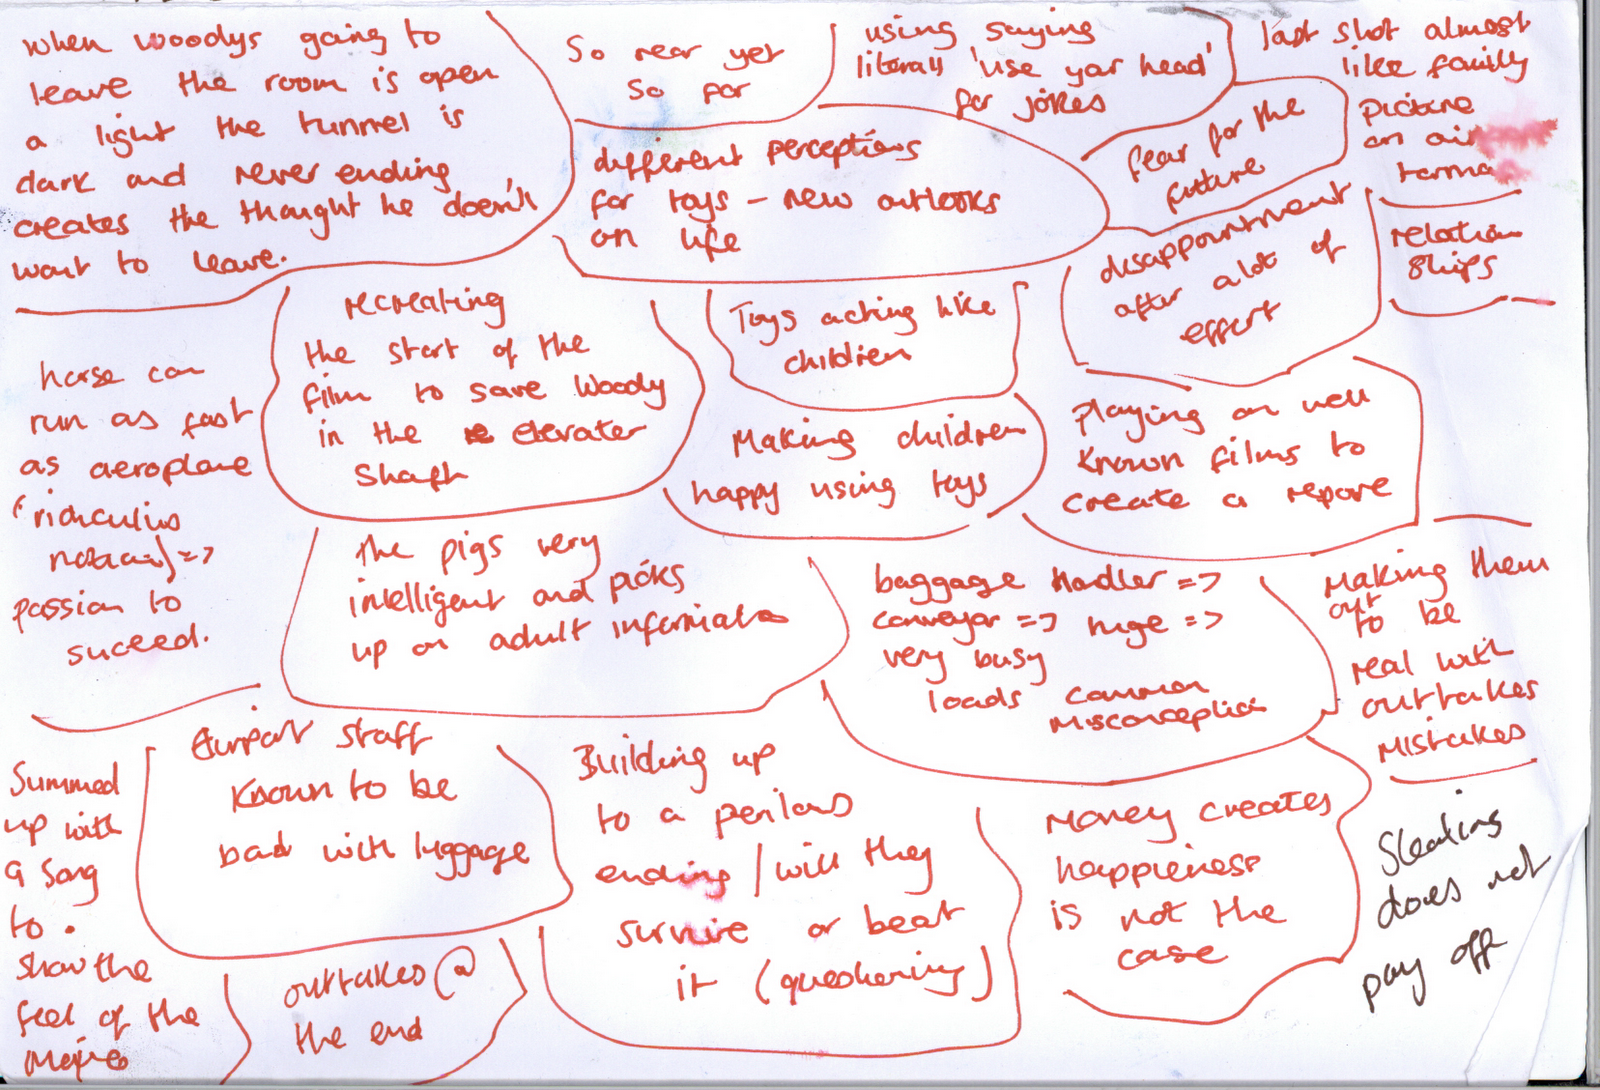 when woodys going to
leave the room is open
a light the tunnel is
dark and never ending
creates the thought he doesn't
want to leave.
So near yet
so far
using saying
literall 'use your head'
for jokes
last shot almost
like family
picture
on air
relation
ships
fear for the
future
different perceptions
for toys - new outlooks
on life
disappointment
after a lot of
effort
recreating
the start of the
film to save Woody
in the elevater
shaft
Toys acting like
children
Making children
happy using toys
playing on well
known films to
create a repore
horse can
run as fast
as aeroplane
(ridiculius
=>
passion to
suceed.
the pigs very
intelligent and picks
up on adult information
baggage handler =>
conveyor => huge =>
very busy
loads common
misconception
Making them
out
to be
real with
outtakes
mistakes
Airport staff
known to be
bad with luggage
Summed
up with
a song
to .
show the
feel of the
Movie
outtakes @
the end
Building up
to a perilous
ending / will they
survive or beat
it (questioning)
Money creates
happieness
is not the
case
Stealing
does not
pay off